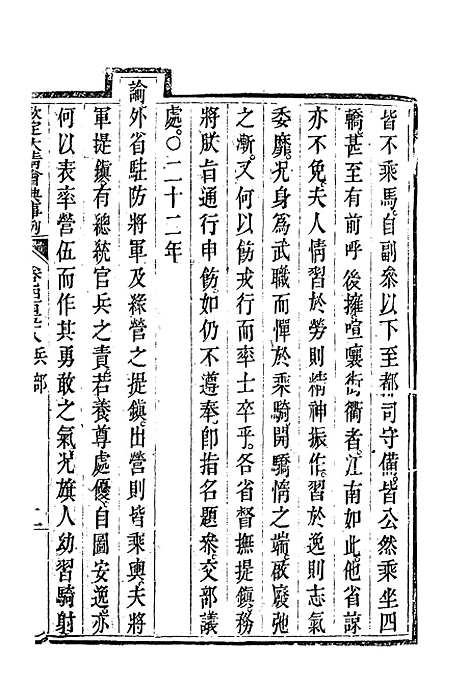 皆不乘馬。自副參以下至都司守備。皆公然乘坐四
轎。甚至有前呼後擁。喧嚷街衢者。江南如此。他省諒
亦不免。夫人情習於勞則精神振作。習於逸則志氣
委靡。況身爲武職而憚於乘騎。開驕惰之端。啟廢弛
之漸。又何以飭戎行而率士卒乎。各省督撫提鎮。務
將朕旨通行申飭。如仍不遵奉。卽指名題參。交部議
處。○二十二年
諭外省駐防將軍及綠營之提鎮。出營則皆乘輿。夫將
軍提鎮。有總統官兵之責。若養尊處優。自圖安逸。亦
何以表率營伍而作其勇敢之氣。況旗人幼習騎射
欽定大清會典事例 卷 百 八 兵部